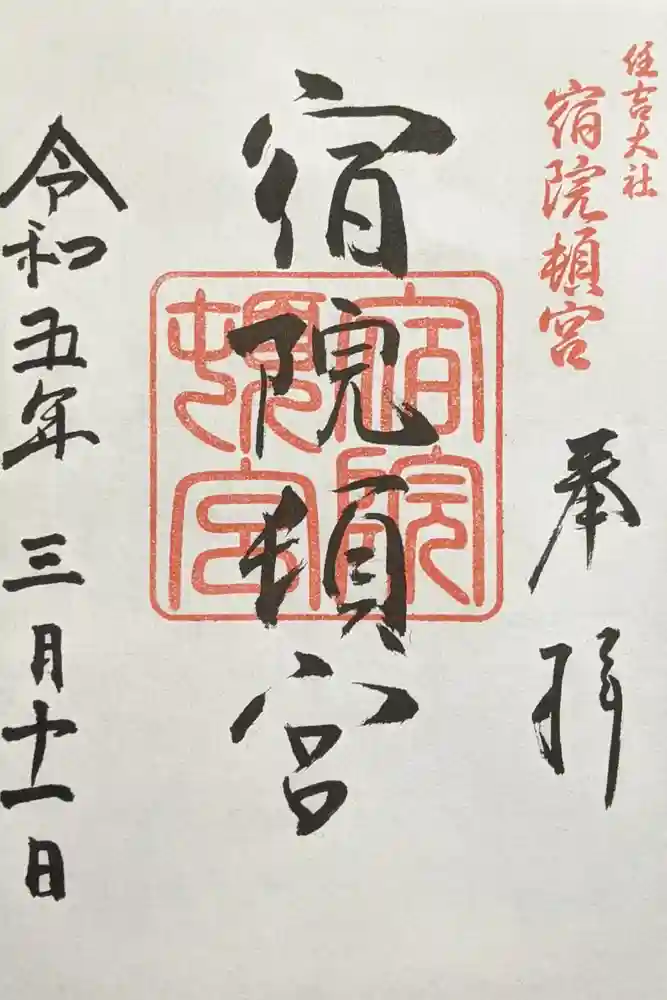 住吉大社
宿院頓宮
奉拝
宿院頓宮
宿院頓宮
令和五年 三月十一日